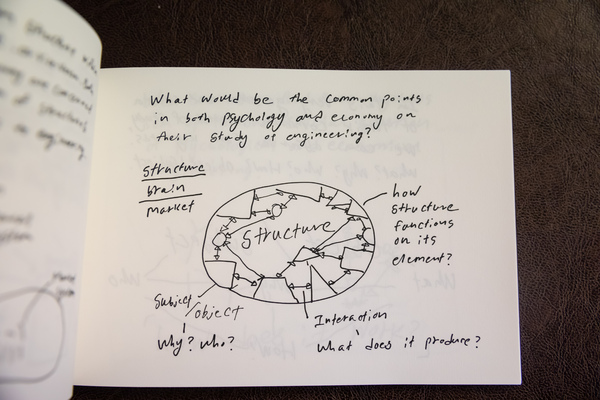 What would be the common points
in both psychology and economy on
their study of engineering?
structure
brain
market
structure
how
structure
functions
on its
element?
Subject/object
why? who?
Interaction
what does it produce?